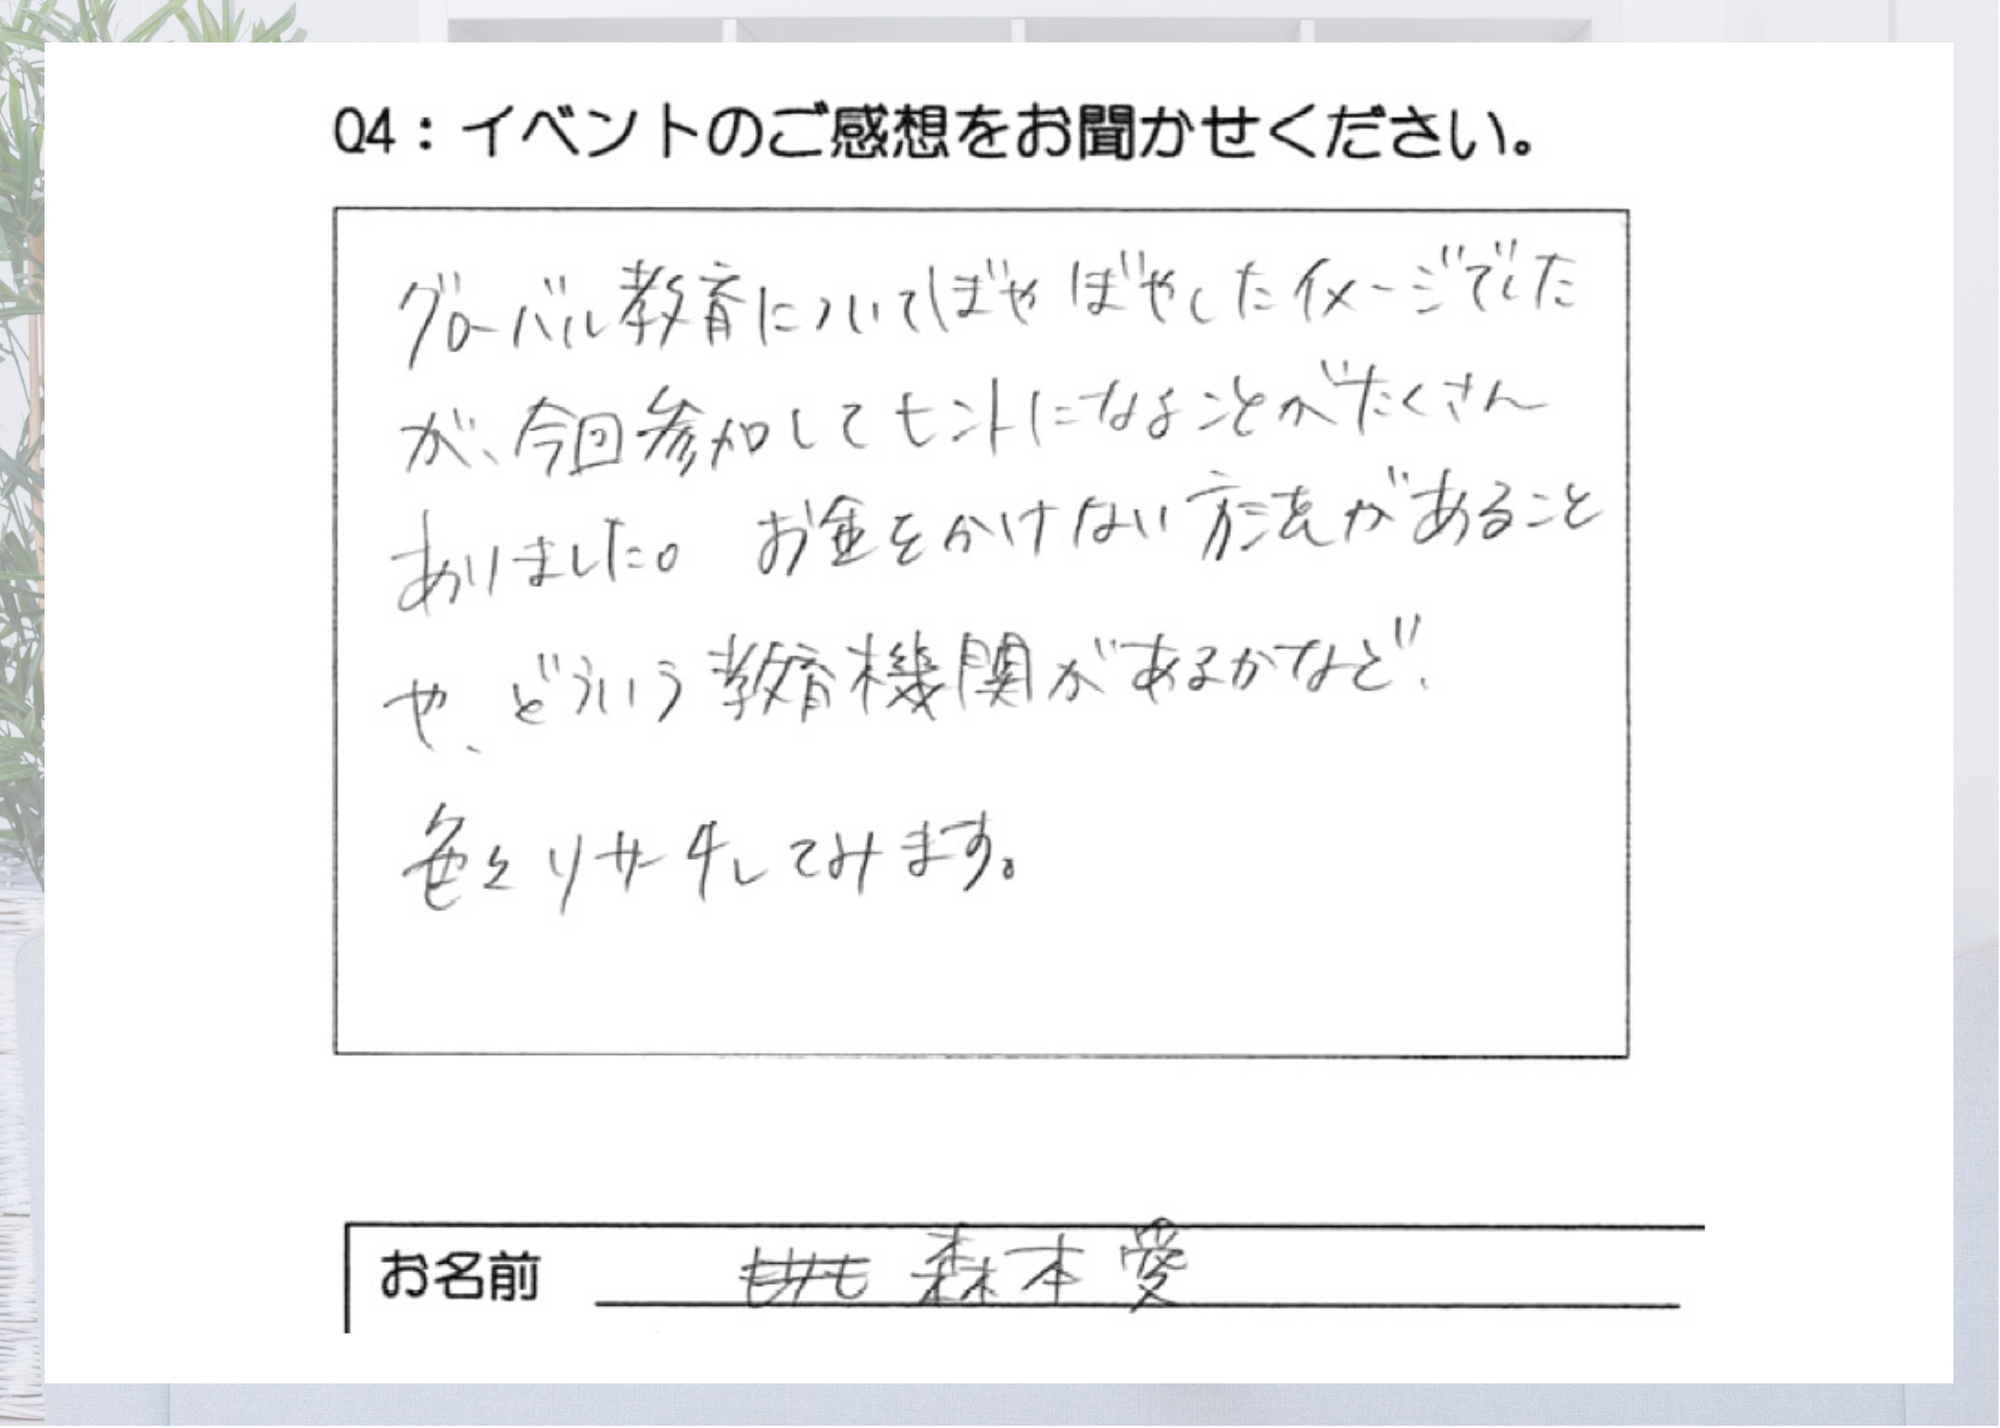 Q4：イベントのご感想をお聞かせください。
グローバル教育についてぼやぼやしたイメージでした
が、今回参加してヒントになることがたくさん
ありました。 お金をかけない方法があること
や、どういう教育機関があるかなど、
色々リサーチしてみます。
お名前 森本愛